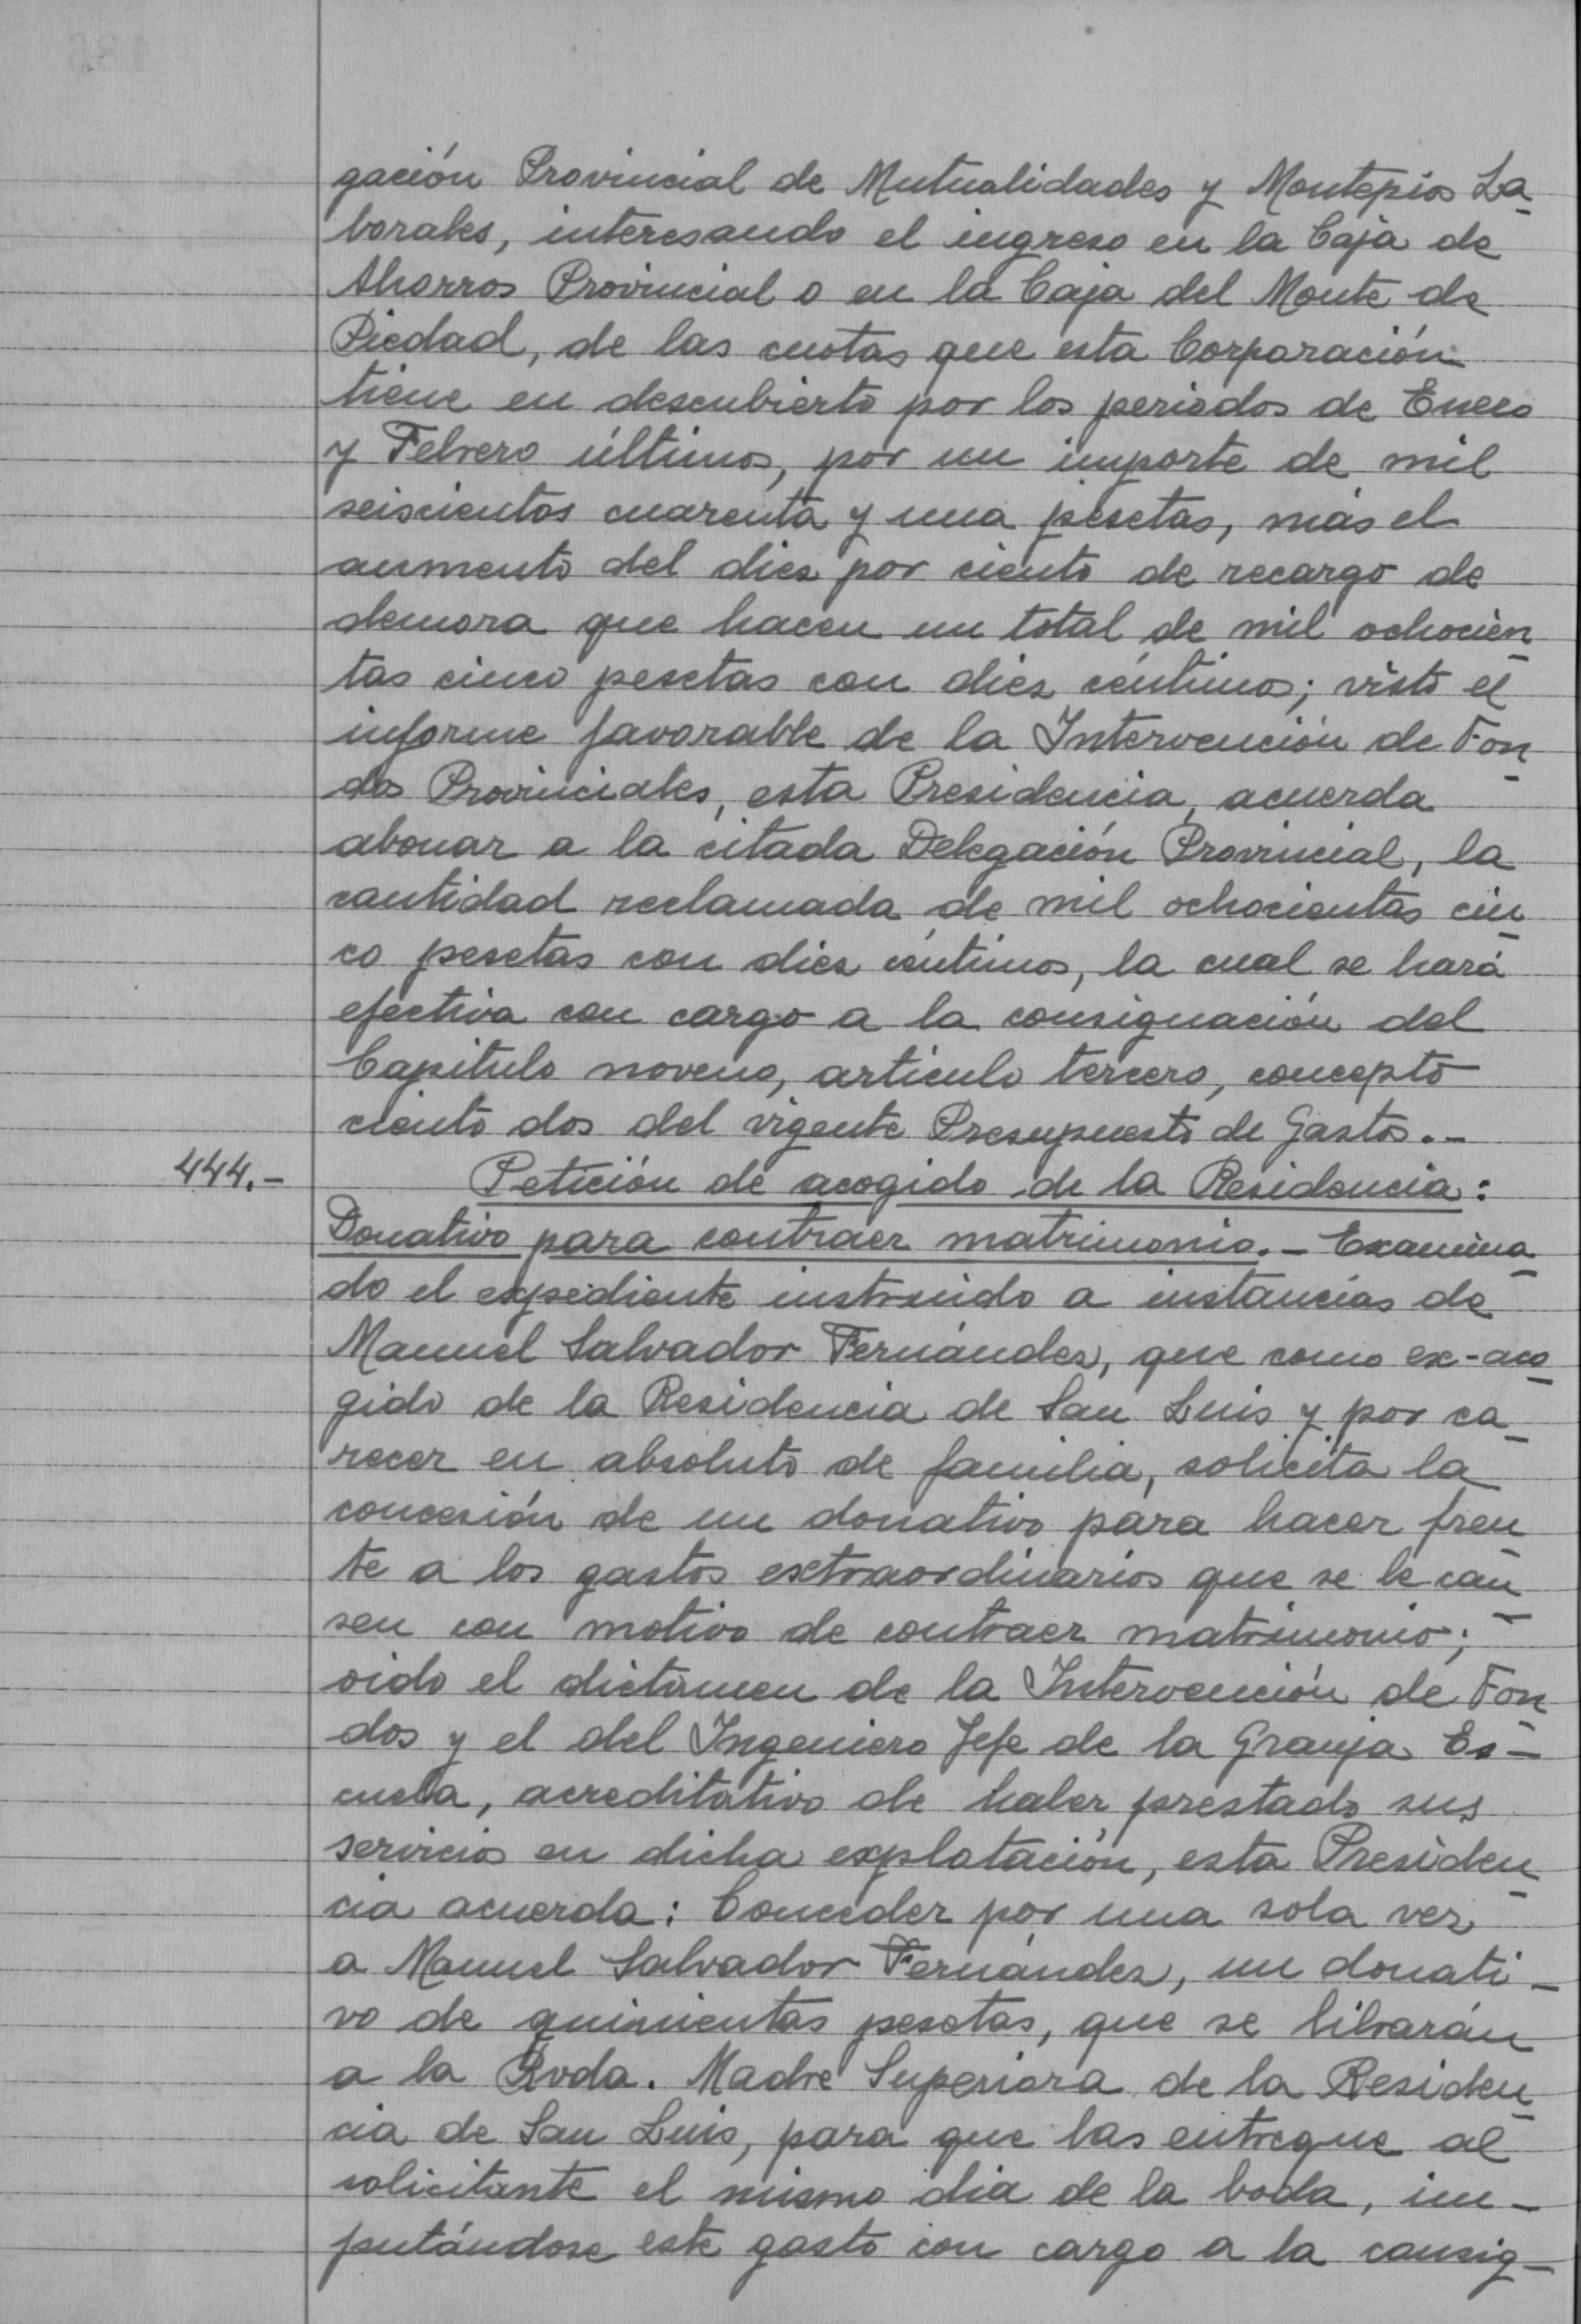 gación Provincial de Mutualidades y Montepios La-
borales, interesando el ingreso en la Caja de
Ahorros Provincial o en la Caja del Monte de
Piedad, de las cuotas que esta Corporación
tiene en descubierto por los periodos de Enero
y Febrero últimos, por un importe de mil
seiscientos cuarenta y una pesetas, más el
aumento del diez por ciento de recargo de
demora que hacen un total de mil ochocien-
tas cinco pesetas con diez céntimos; visto el
informe favorable de la Intervención de Fon-
dos Provinciales, esta Presidencia, acuerda
abonar a la citada Delegación Provincial, la
cantidad reclamada de mil ochocientas cin-
co pesetas con diez céntimos, la cual se hará
efectiva con cargo a la consignación del
Capitulo noveno, articulo tercero, concepto
ciento dos del vigente Presupuesto de Gastos.-
444.- Petición de acogido de la Residencia:
Donativo para contraer matrimonio.- Examina-
do el expediente instruido a instancias de
Manuel Salvador Fernández, que como ex-aco-
gido de la Residencia de San Luis y por ca-
recer en absoluto de familia, solicita la
concesión de un donativo para hacer fren-
te a los gastos extraordinarios que se le cau-
sen con motivo de contraer matrimonio;
oido el dictamen de la Intervención de Fon-
dos y el del Ingeniero Jefe de la Granja Es-
cuela, acreditativo de haber prestado sus
servicios en dicha explotación, esta Presiden-
cia acuerda: Conceder por una sola vez
a Manuel Salvador Fernández, un donati-
vo de quinientas pesetas, que se librarán
a la Rvda. Madre Superiora de la Residen-
cia de San Luis, para que las entregue al
solicitante el mismo dia de la boda, im-
putándose este gasto con cargo a la consig-